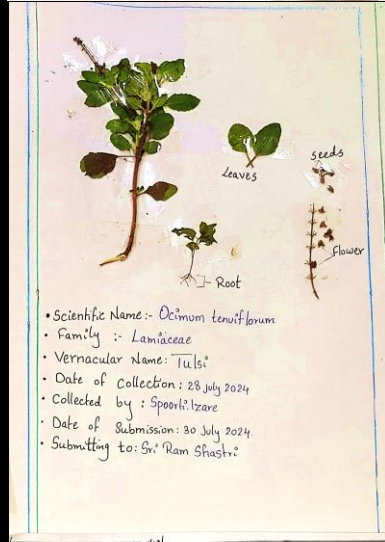 Leaves
seeds
flower
Root
• Scientific Name:- Ocimum tenuiflorum
• Family :- Lamiaceae
• Vernacular Name: Tulsi
• Date of Collection: 28 July 2024
• Collected by : Spoorti. Izare
• Date of Submission: 30 July 2024.
• Submitting to: Sri Ram Shastri